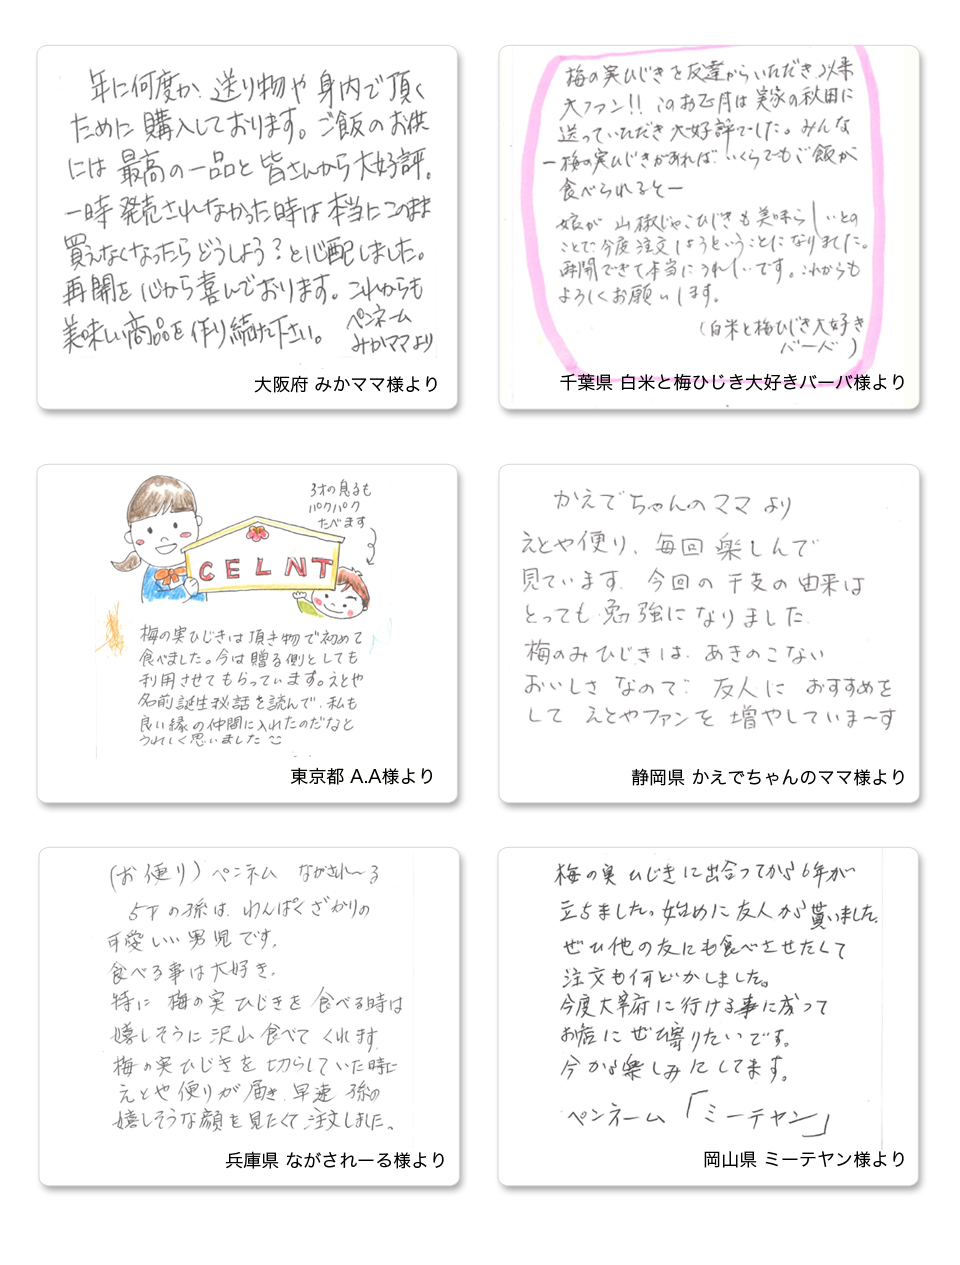 年に何度か、送り物や身内で頂く
ために購入しております。ご飯のお供
には最高の一品と皆さんから大好評。
一時発売されなかった時は本当にこのまま
買えなくなったらどうしよう?と心配しました。
再開を心から喜んでおります。これからも
美味しい商品を作り続け下さい。
ペンネーム
みかママより
大阪府 みかママ様より
梅の実ひじきを友達からいただき、以来
大ファン!!このお正月は実家の秋田に
送っていただき大好評でした。みんな
ー梅の実ひじきがあれば、いくらでもご飯が
食べられるとー
娘が山椒じゃこひじきも美味らしいとの
ことで今度注文しようということになりました。
再開できて本当にうれしいです。これからも
よろしくお願いします。
(白米と梅ひじき大好き
バーバ)
千葉県 白米と梅ひじき大好きバーバ様より
3才の息るも
パクパク
たべます
CELNT
梅の実ひじきは頂き物で初めて
食べました。今は贈る側としても
利用させてもらっています。えとや
名前誕生秘話を読んで、私も
良い縁の仲間に入れたのだなと
うれしく思いました
東京都 A.A様より
かえでちゃんのママより
えとや便り、毎回楽しんで
見ています。今回の干支の由来は
とっても勉強になりました
梅のみひじきは、あきのこない
おいしさなので、友人におすすめを
してえとやファンを増やしていま〜す
静岡県 かえでちゃんのママ様より
(お便り)ペンネム ながされ〜る
5才の孫は、わんぱくざかりの
可愛いい男児です。
食べる事は大好き、
特に梅の実ひじきを食べる時は
嬉しそうに沢山食べてくれます
梅の実ひじきを切らしていた時に
えとや便りが届き、早速孫の
嬉しそうな顔を見たくて注文しました。
兵庫県 ながされーる様より
梅の実ひじきに出合ってから6年が
立ちました。始めに友人から貰いました。
ぜひ他の友にも食べさせたくて
注文も何どかしました。
今度大宰府に行ける事に成って
お店にぜひ寄りたいです。
今から楽しみにしてます。
ペンネーム「ミーテヤン」
岡山県 ミーテヤン様より